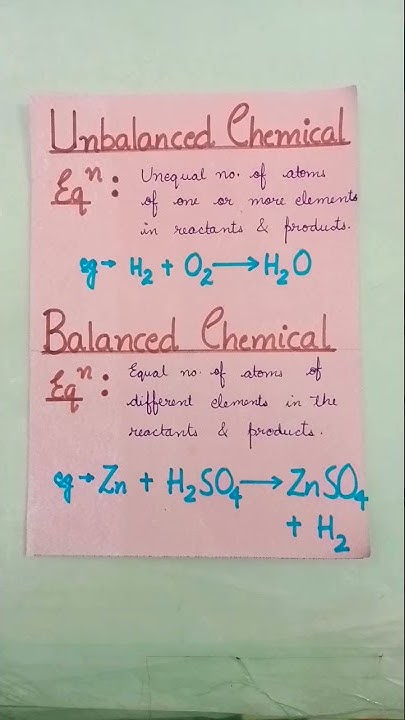 Unbalanced Chemical
Eqⁿ: Unequal no. of atoms
of one or more elements
in reactants & products.
eg → H₂ + O₂ ⟶ H₂O
Balanced Chemical
Eqⁿ: Equal no. of atoms of
different elements in the
reactants & products.
eg → Zn + H₂SO₄ ⟶ ZnSO₄
+ H₂